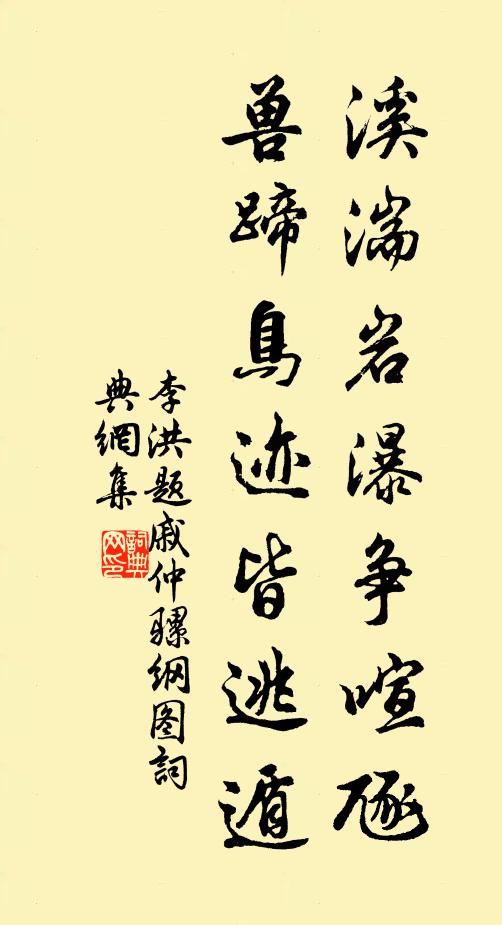 溪湍岩瀑争喧豗
兽蹄鳥迹皆逃遁
李洪题戚仲骡纲图詞
典網集
詞典
网印